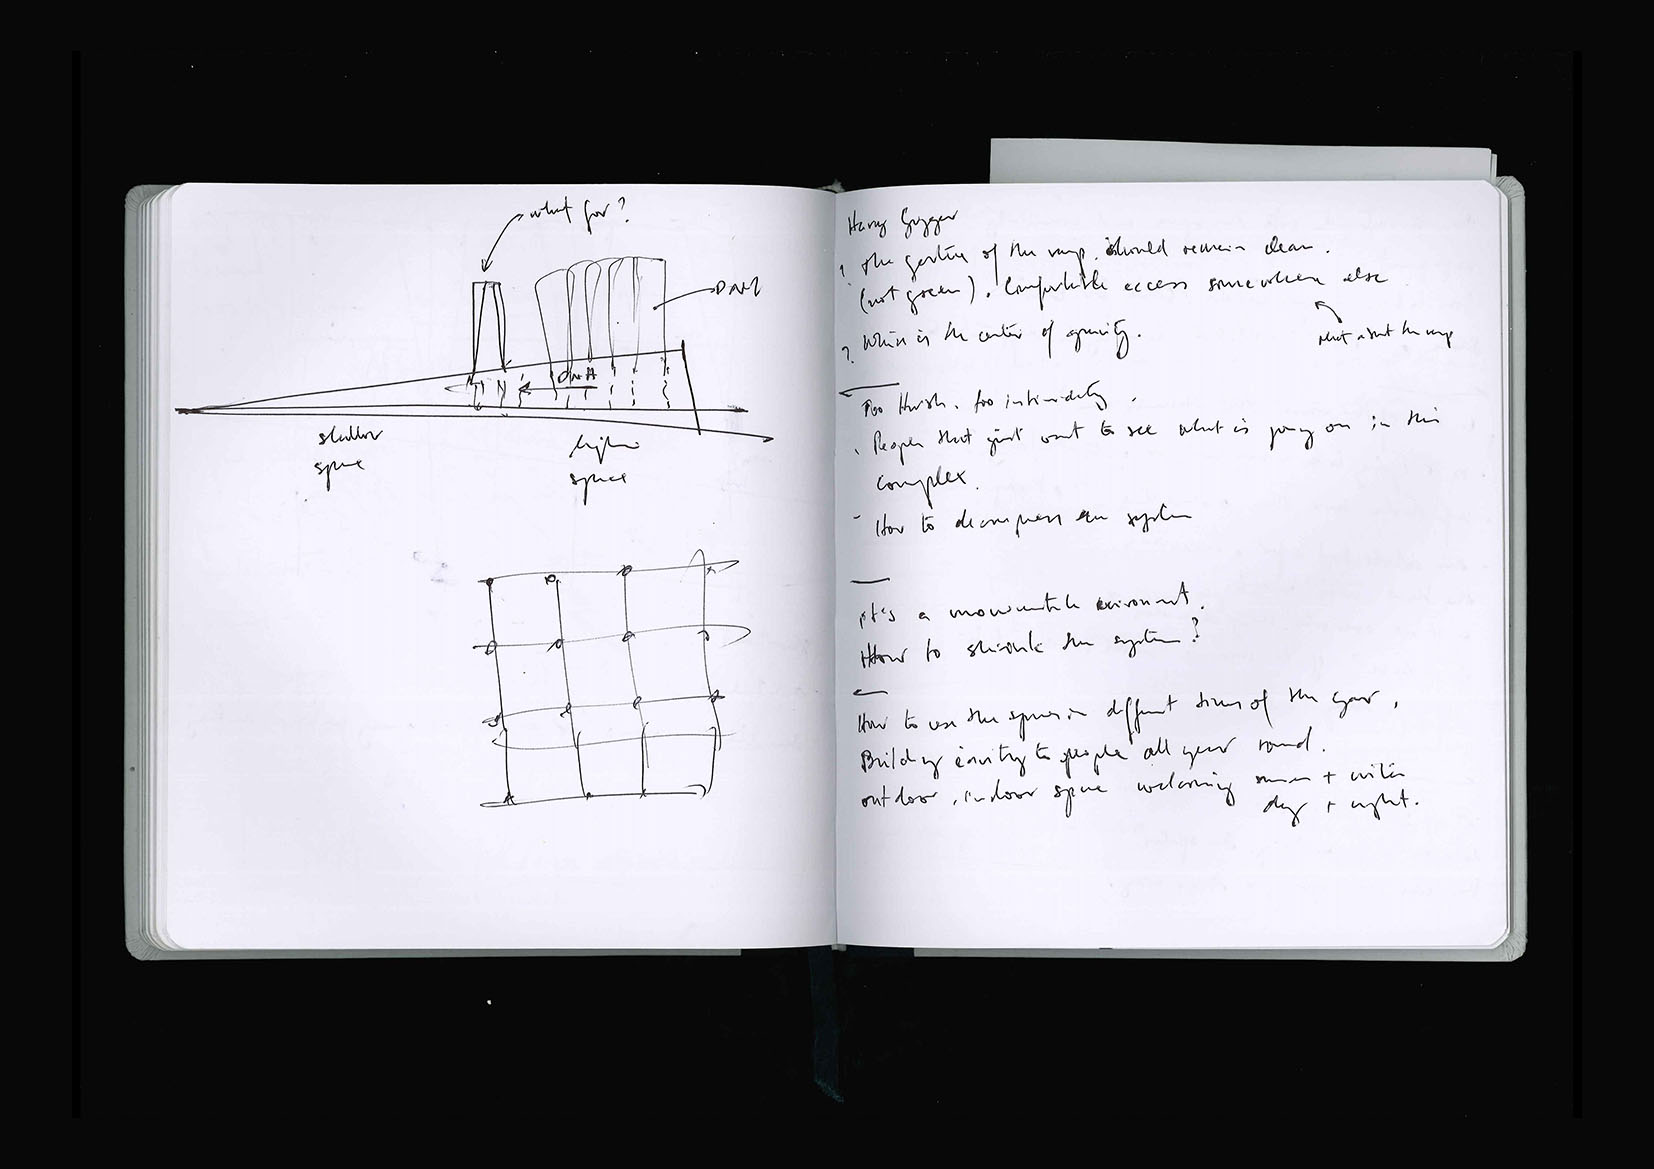 what for?
DNA
shallow
space
higher
space
Harry Gugger
the gesture of the ramp. should remain clean.
(not green). Comfortable access somewhere else
what about the ramp
? Where is the center of gravity.
Too Harsh. too intimidating.
People that just want to see what is going on in this
complex.
- How to decompress the system
it's a monumental environment.
How to shrink the system?
How to use the spaces in different times of the year,
Building inviting to people all year round.
outdoor, indoor space welcoming summer + winter
day + night.